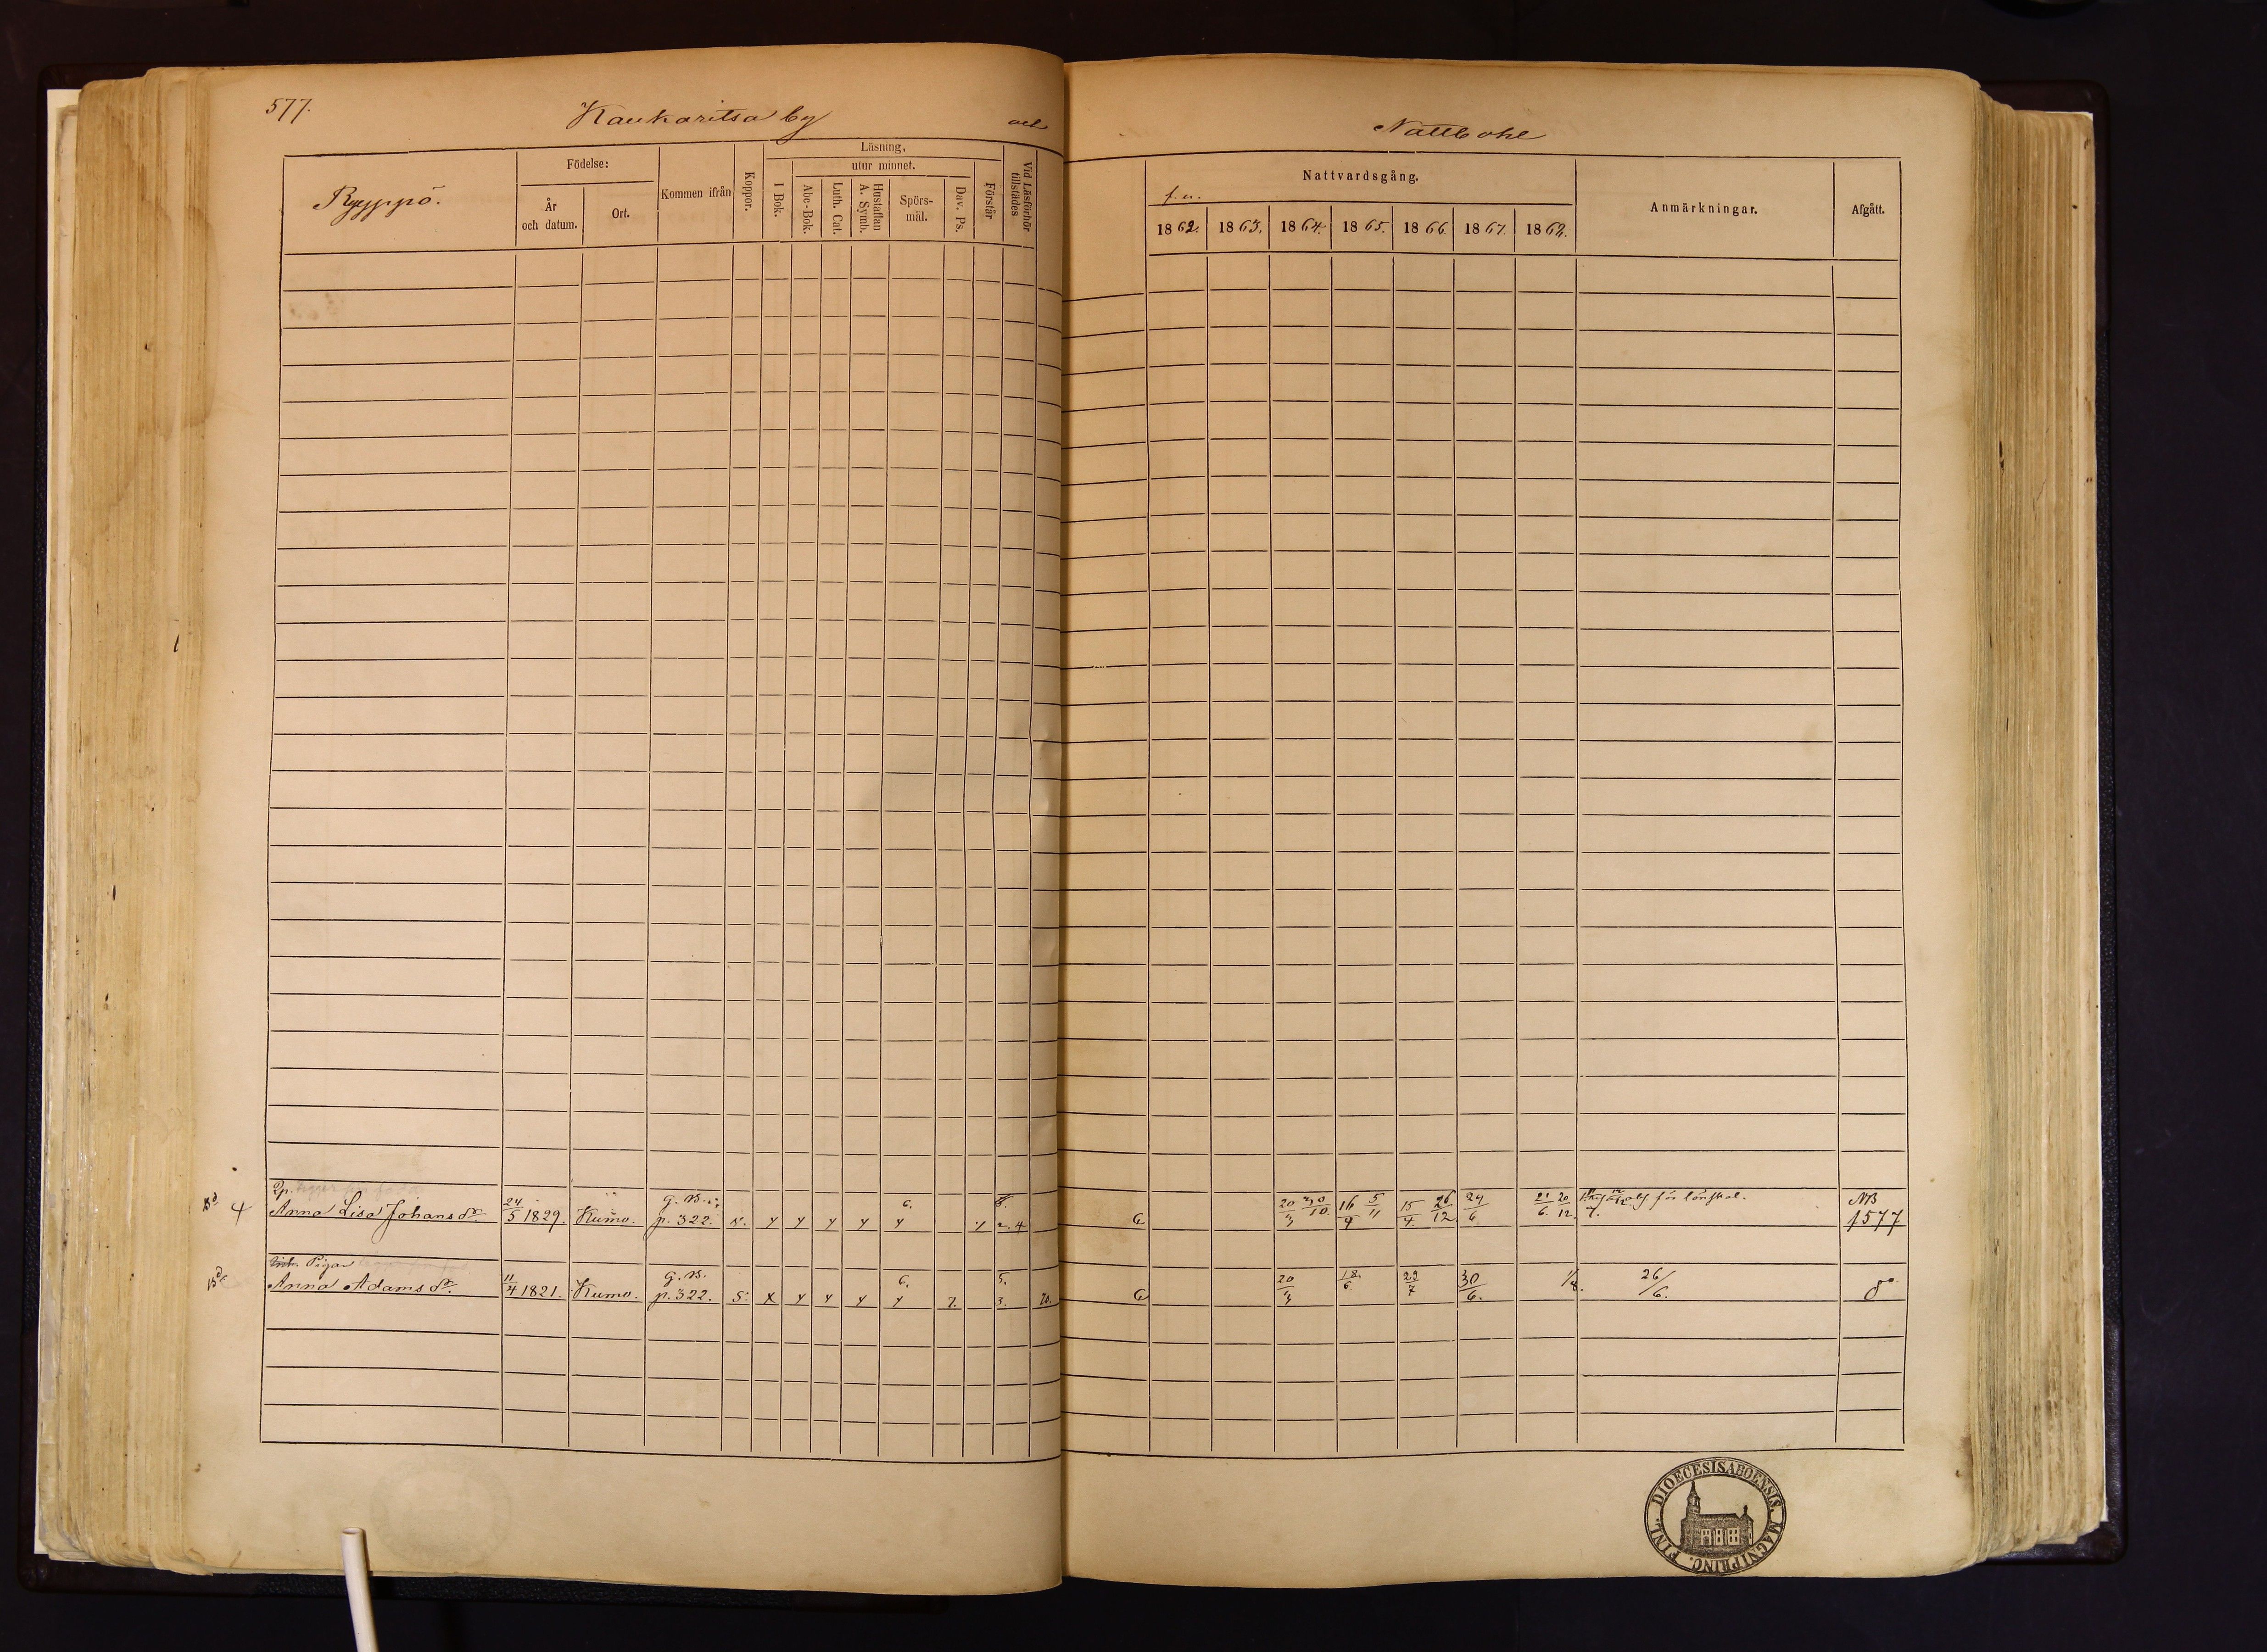 577.
Kaukaritsa by
och
Nattbohl
Ryyppö.
Födelse:
År
och datum.
Ort.
Kommen ifrån
Koppor.
Läsning,
I Bok.
utur minnet.
Abc-Bok.
Luth. Cat.
Hustaflan
A. Symb.
Spörs-
mål.
Dav. Ps.
Förstår
Vid Läsförhör
tillstädes
Nattvardsgång.
1862.
1863.
1864.
1865.
1866.
1867.
1868.
Anmärkningar.
Afgått.
4
Anna Lisa Johansdr.
24/5 1829.
Kumo.
g. B.
p. 322.
y y y y y
2. 4
20/3 30/10
16/4 5/11
15/4. 26/12
24/6.
21/6. 20/12
NB
f 577
Pigan
Anna Adamsdr.
11/4 1821.
Kumo.
g. B.
p. 322.
S. x y y y y
7.
5.
3.
20/3
18/6
29/7
30/6.
1/8.
26/6.
FINL. DIOECESIS ABOENSIS. MAGNI PRINC.